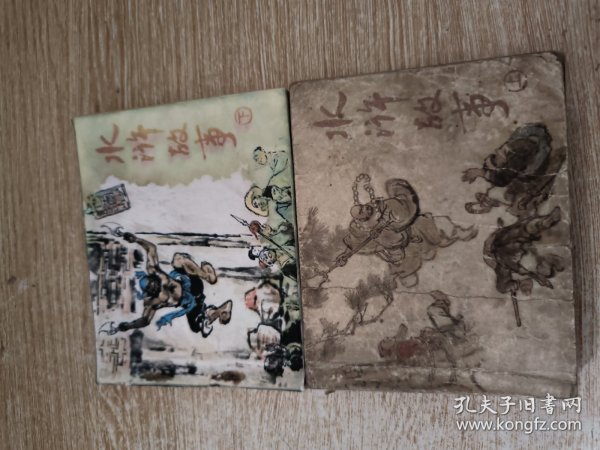 水浒故事 下
水浒故事 上
孔夫子旧书网
www.kongfz.com